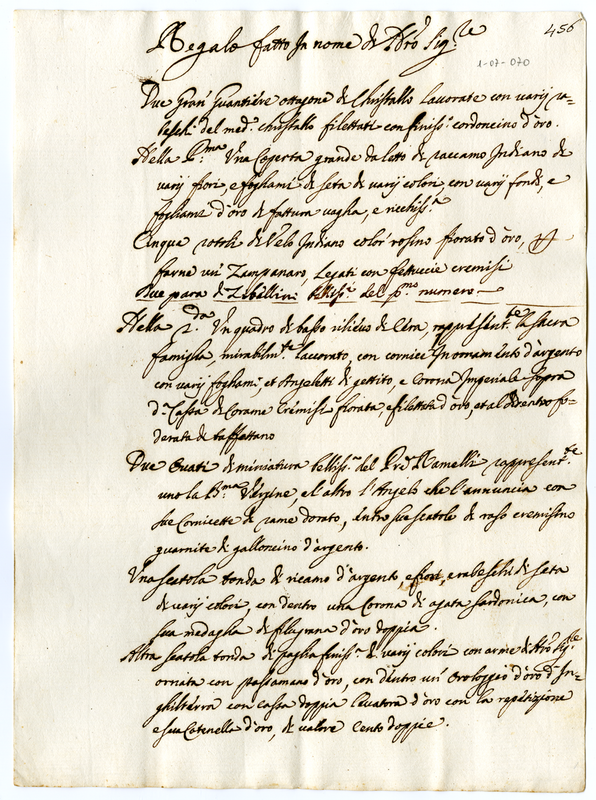 456
Regalo fatto In nome di Nr̃o Sig.re
1-07-070
Due Gran' Guantiere ottagone di Christallo lavorate con varij ra-
beschi del med.o christallo filettati con finiss.o cordoncino d'oro.
Nella P.ma Una Coperta grande da letto di raccamo Indiano de
varij fiori, e fogliami di seta di varij colori, con varij fondi, e
fogliami d'oro di fattura vagha, e ricchiss.a
Cinque rotoli di Velo Indiano color rosino fiorato d'oro, p
farne un' Zampanaro, Legati con fettuccie cremisi
Due para di Zibellini belliss.i del p.mo numero
Nella 2.da Un quadro di basso rilievo di Cera, rappresent.te la sacra
famiglia, mirabilm.te lavorato, con cornice In ornamento d'argento
con varij fogliami, et Angeletti di gettito, e Corona Imperiale sopra
d.a Cassa di Corame Cremisi fiorata, e filettata d'oro, et al didentro fo-
derata di taffettano
Due Ovati di miniatura belliss.i del Pre' Ramelli rappresent.te
uno la B.ma Vergine, e l'altro l'Angelo che l'annuncia con
sue Cornicette di rame dorato, dentro sue scatole di raso cremisino
guarnite di galloncino d'argento.
Una scatola tonda di ricamo d'argento, e fiori, e rabeschi di seta
di varij colori, con dentro una Corona di agata sardonica, con
sua medaglia di filagrana d'oro doppia.
Altra scatola tonda di paglia finiss.a di varij colori con arme di Nr̃o Sig.re
ornata con passamano d'oro, con dentro un' Orologgio d'oro d'In-
ghilterra con cassa doppia lavorata d'oro con la repetizione
e sua Catenella d'oro, di valore Cento doppie.